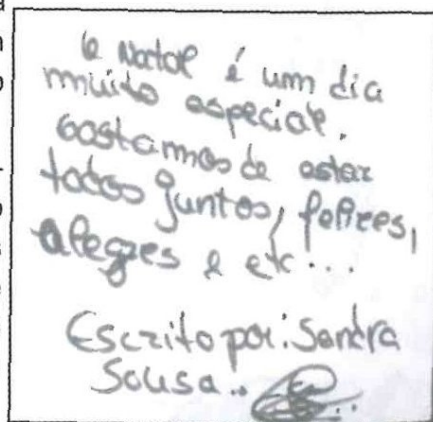 O Natal é um dia
muito especial.
Gostamos de estar
todos juntos, felizes,
alegres e etc...
Escrito por: Sandra
Sousa..